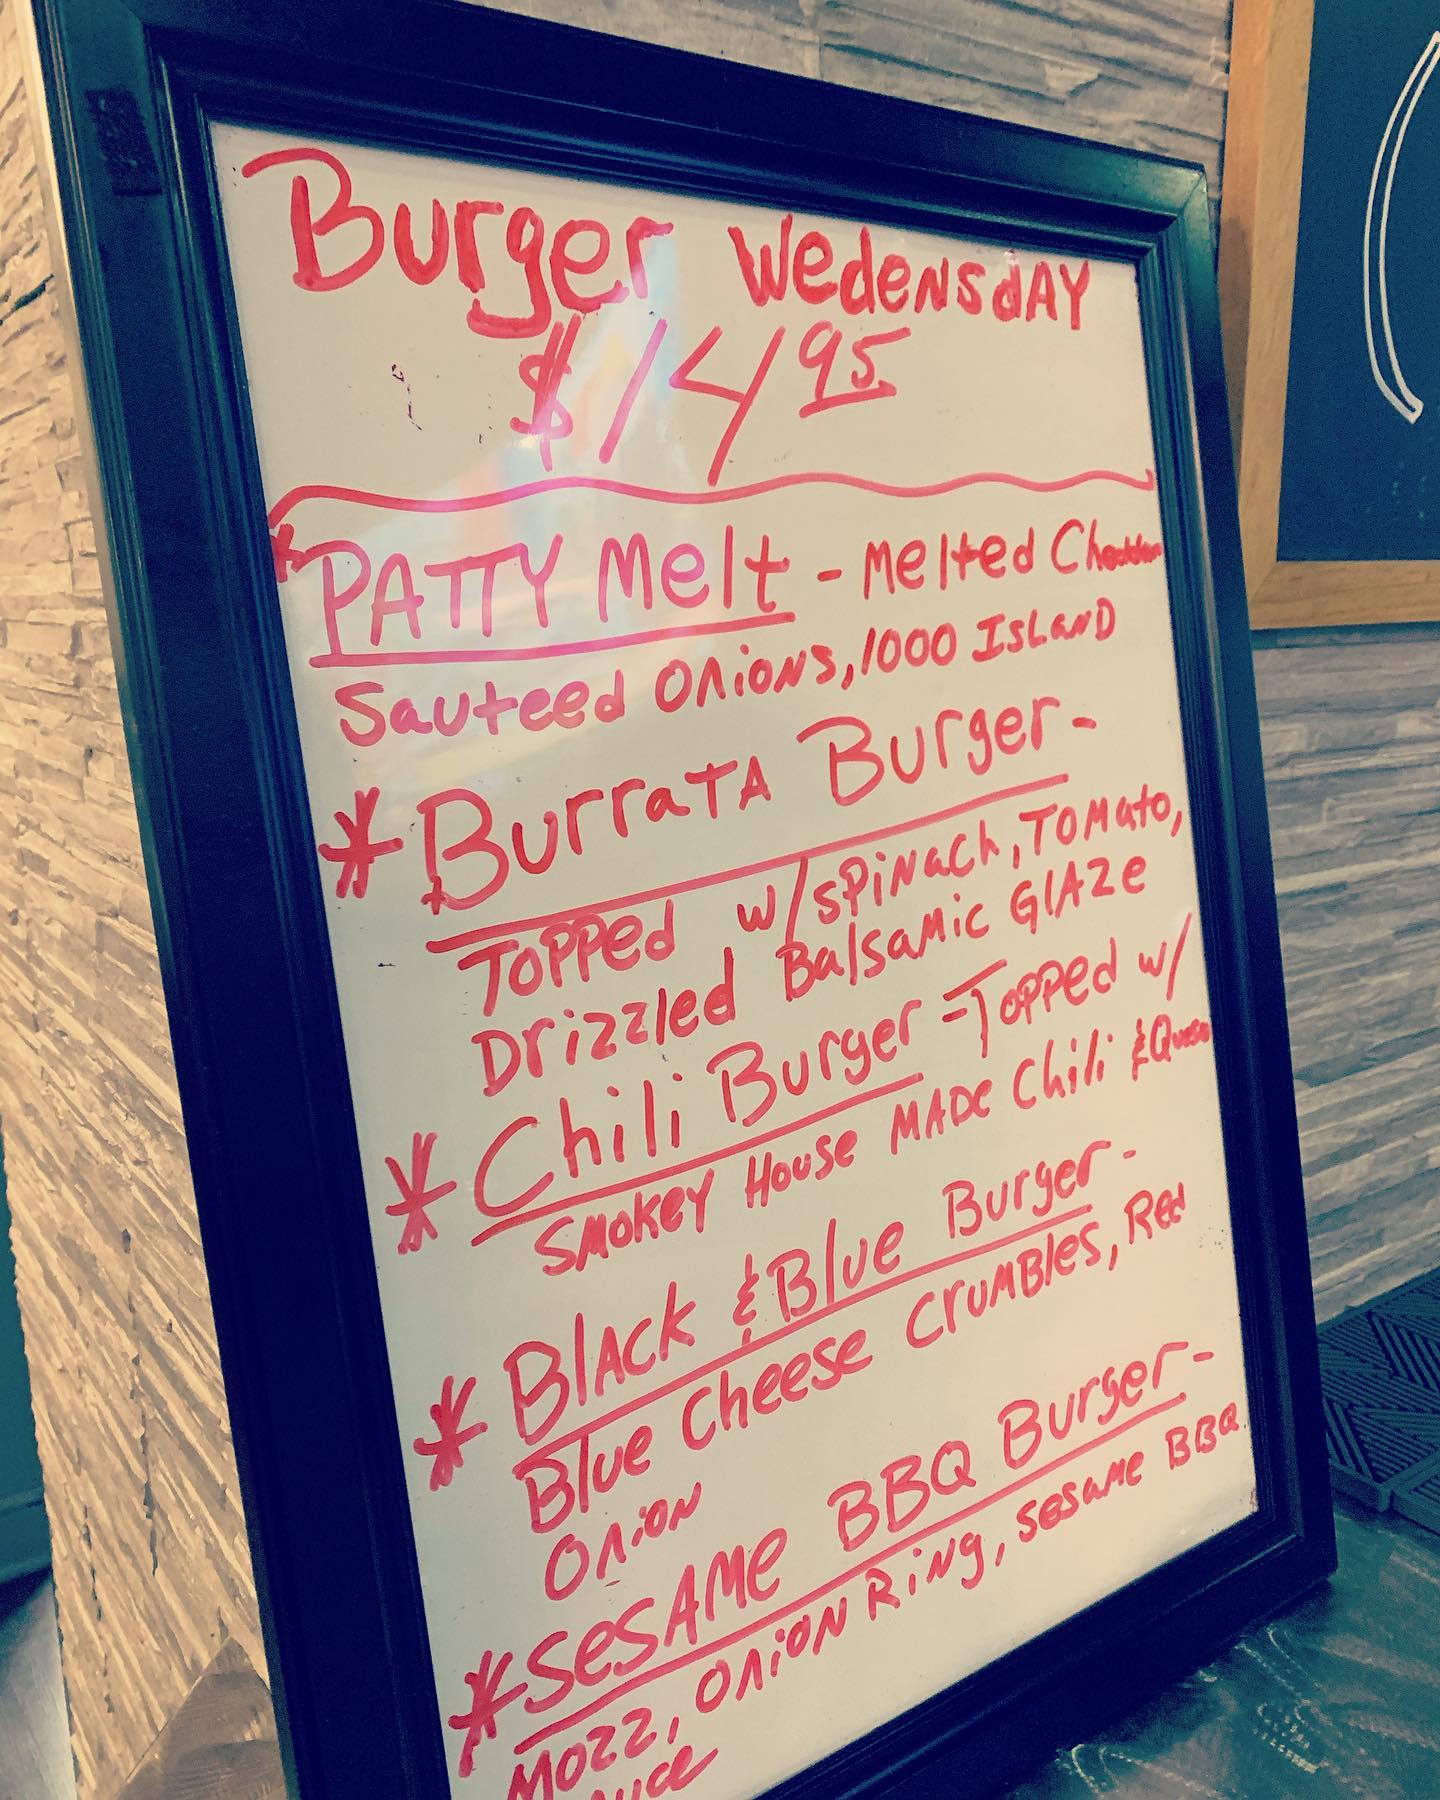 Burger Wedensday
$14 95
* Patty Melt - Melted Cheddar
Sauteed Onions, 1000 Island
* Burrata Burger -
Topped w/ Spinach, Tomato,
Drizzled Balsamic Glaze
* Chili Burger - Topped w/
Smokey House Made Chili & Queso
* Black & Blue Burger -
Blue Cheese Crumbles, Red
Onion
* Sesame BBQ Burger -
Mozz, Onion Ring, Sesame BBQ